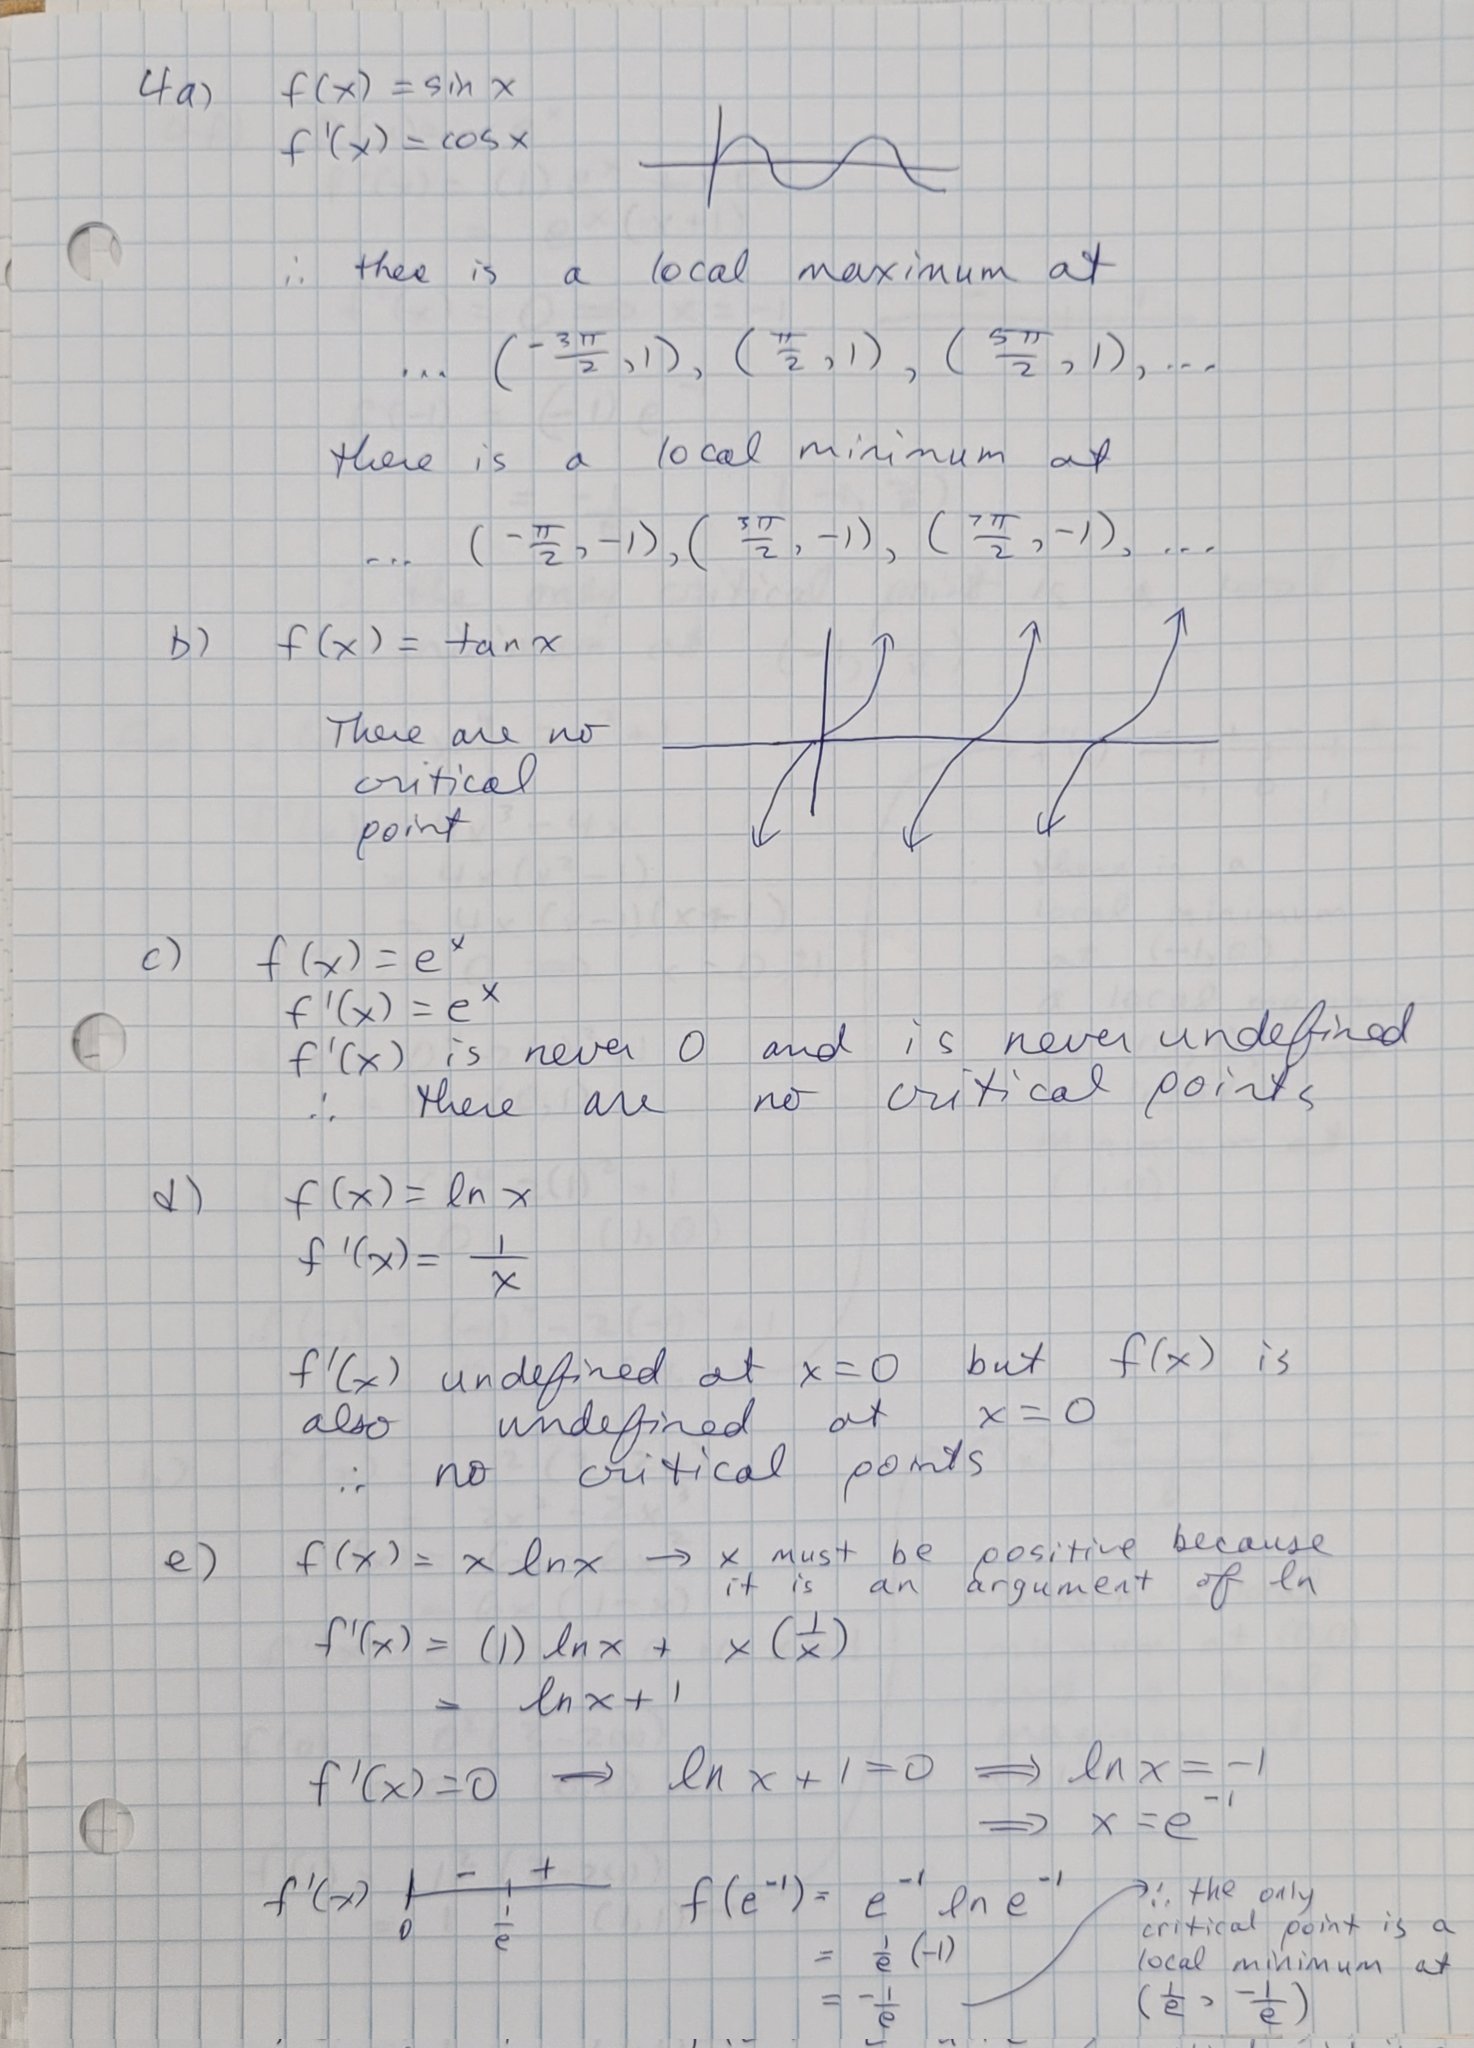 4a) f(x) = sin x
f'(x) = cos x
∴ thee is a local maximum at
... (-3π/2, 1), (π/2, 1), (5π/2, 1), ...
there is a local minimum at
... (-π/2, -1), (3π/2, -1), (7π/2, -1), ...
b) f(x) = tan x
There are no
critical
point
c) f(x) = e^x
f'(x) = e^x
f'(x) is never 0 and is never undefined
∴ there are no critical points
d) f(x) = ln x
f'(x) = 1/x
f'(x) undefined at x = 0 but f(x) is
also undefined at x = 0
∴ no critical points
e) f(x) = x ln x → x must be positive because
it is an argument of ln
f'(x) = (1) ln x + x (1/x)
= ln x + 1
f'(x) = 0 ⟹ ln x + 1 = 0 ⟹ ln x = -1
⟹ x = e^-1
f'(x) - +
0 1/e
f(e^-1) = e^-1 ln e^-1
= 1/e (-1)
= -1/e
∴ the only
critical point is a
local minimum at
(1/e, -1/e)